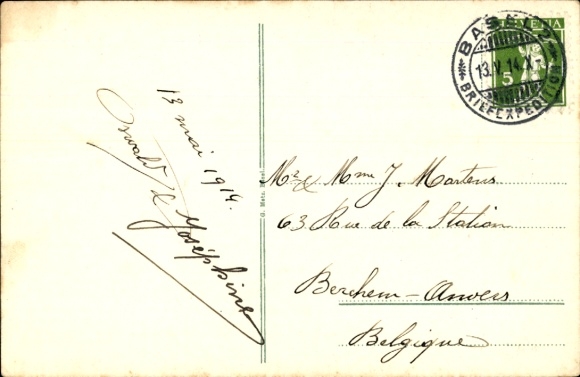 13 mai 1914.
Oswald & Joséphine
G. Metz, Basel
HELVETIA
5
BASEL 2
13.V.14.X-
BRIEFEXPEDITION
Mr & Mme J. Martens
63 Rue de la Station
Berchem-Anvers
Belgique